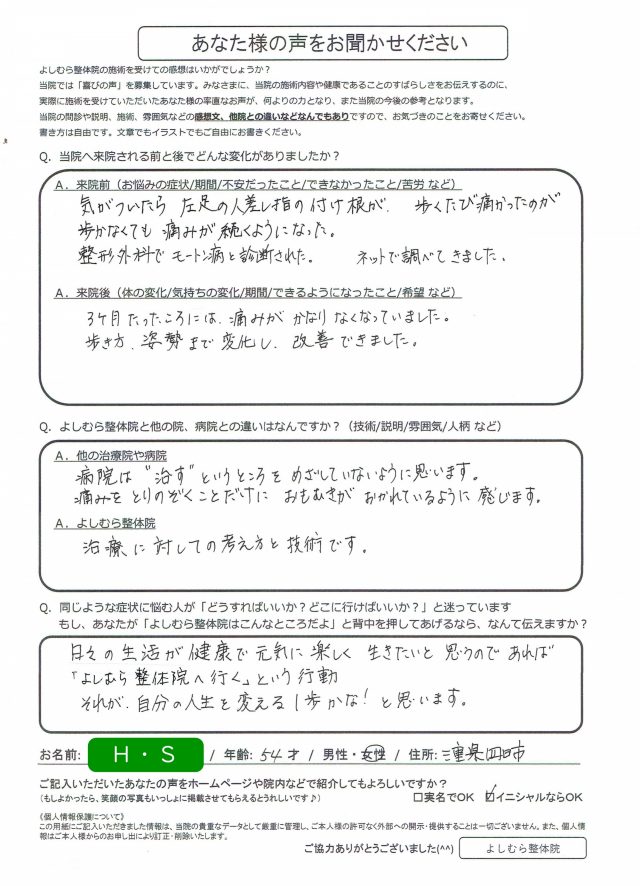 あなた様の声をお聞かせください
よしむら整体院の施術を受けての感想はいかがでしょうか？
当院では「喜びの声」を募集しています。みなさまに、当院の施術内容や健康であることのすばらしさをお伝えするのに、
実際に施術を受けていただいたあなた様の率直なお声が、何よりの力となり、また当院の今後の参考となります。
当院の問診や説明、施術、雰囲気などの感想文、他院との違いなどなんでもありですので、お気づきのことをお寄せください。
書き方は自由です。文章でもイラストでもご自由にお書きください。
Q．当院へ来院される前と後でどんな変化がありましたか？
A．来院前（お悩みの症状/期間/不安だったこと/できなかったこと/苦労 など）
気がついたら 左足の人差し指の付け根が、歩くたび痛かったのが
歩かなくても 痛みが続くようになった。
整形外科で モートン病と診断された。 ネットで調べてきました。
A．来院後（体の変化/気持ちの変化/期間/できるようになったこと/希望 など）
3ヶ月たったころには、痛みが かなり なくなっていました。
歩き方、姿勢まで 変化し、改善できました。
Q．よしむら整体院と他の院、病院との違いはなんですか？（技術/説明/雰囲気/人柄 など）
A．他の治療院や病院
病院は “治す” というところを めざしていないように思います。
痛みを とりのぞくことだけに おもむきが おかれているように 感じます。
A．よしむら整体院
治療に対しての考え方と技術です。
Q．同じような症状に悩む人が「どうすればいいか？どこに行けばいいか？」と迷っています
もし、あなたが「よしむら整体院はこんなところだよ」と背中を押してあげるなら、なんて伝えますか？
日々の生活が健康で元気に楽しく 生きたいと 思うのであれば
「よしむら整体院へ行く」という行動
それが、自分の人生を変える1歩かな！と思います。
お名前: H・S / 年齢: 54才 / 男性・女性 / 住所: 三重県四日市
ご記入いただいたあなたの声をホームページや院内などで紹介してもよろしいですか？
（もしよかったら、笑顔の写真もいっしょに掲載させてもらえるとうれしいです♪） □実名でOK ☑イニシャルならOK
《個人情報保護について》
この用紙にご記入いただきました情報は、当院の貴重なデータとして厳重に管理し、ご本人様の許可なく外部への開示・提供することは一切ございません。また、個人情
報はご本人様からのお申し出により訂正・削除いたします。
ご協力ありがとうございました(^^) よしむら整体院